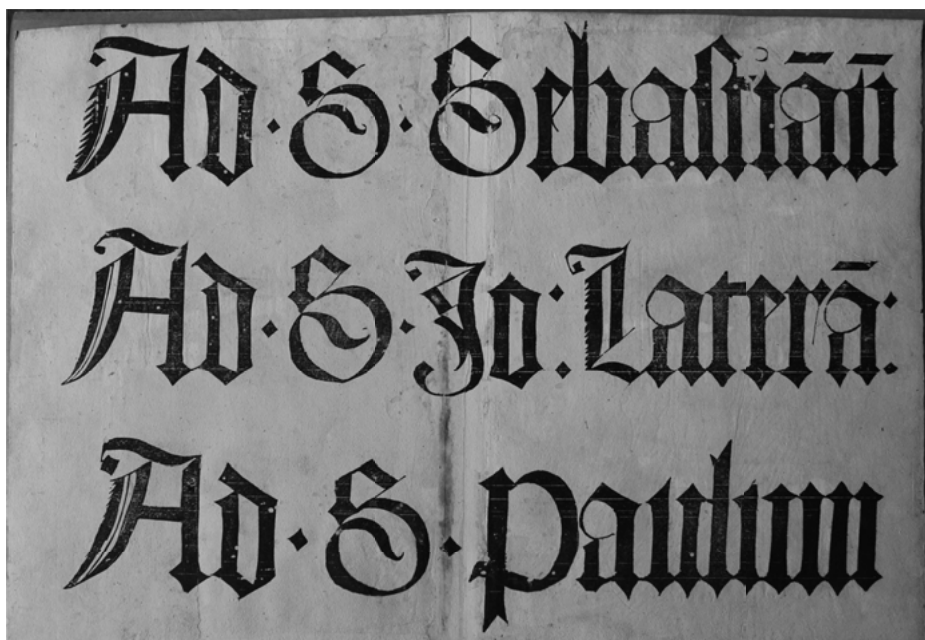 Ad · S · Sebaſtiān̄
Ad · S · Jo: Laterā:
Ad · S · Paulum